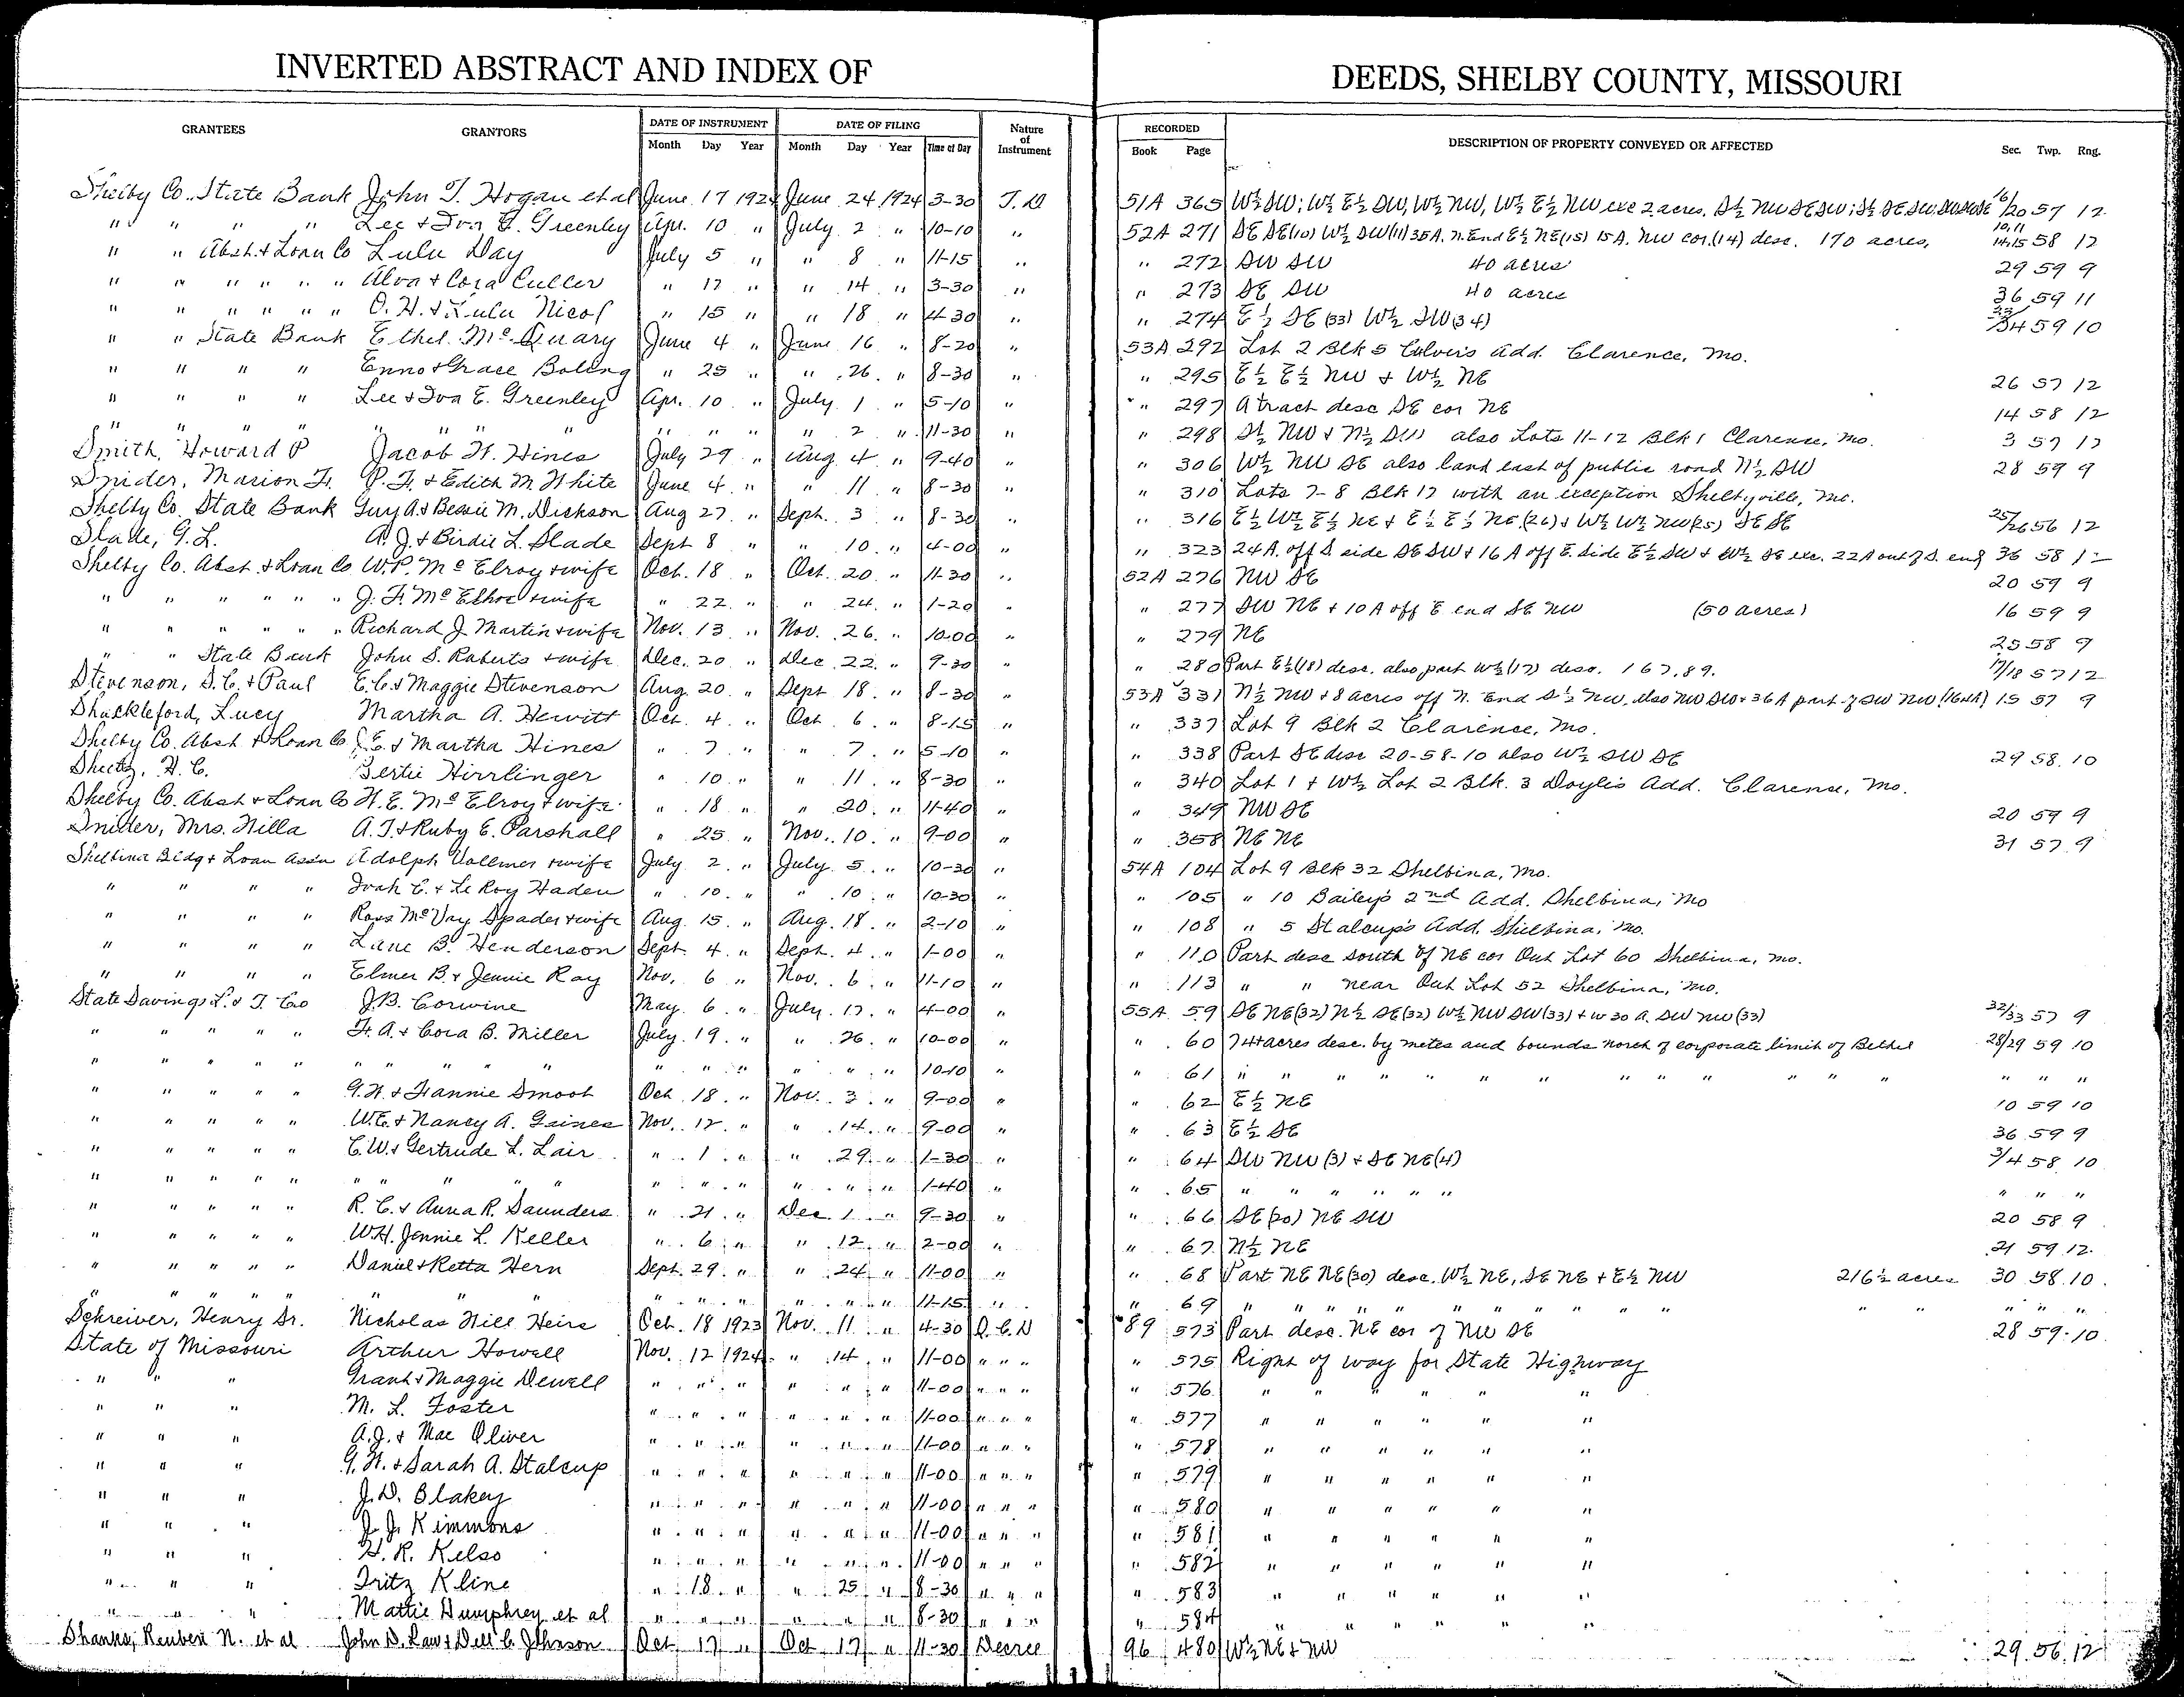 INVERTED ABSTRACT AND INDEX OF DEEDS, SHELBY COUNTY, MISSOURI
GRANTEES GRANTORS DATE OF INSTRUMENT DATE OF FILING Nature of Instrument RECORDED DESCRIPTION OF PROPERTY CONVEYED OR AFFECTED Sec. Twp. Rng.
Month Day Year Month Day Year Time of Day Book Page
Shelby Co. State Bank John T. Hogan et al June 17 1924 June 24 1924 3-30 T. D 51A 365 W½ SW; W½ E½ SW, W½ NW, W½ E½ NW exc 2 acres. S½ NW SE SW; 16/20 57 12
" " " " Lee & Iva E. Greenley Apr. 10 " July 2 " 10-10 " 52A 271 SE SE(10) W½ SW(11) 35A. N. End E½ NE(15) 15A. NW cor.(14) desc. 170 acres, 10,11 14,15 58 12
" " Abst. & Loan Co Lulu Day July 5 " " 8 " 11-15 " " 272 SW SW 40 acres 29 59 9
" " " " " Alva & Cora Culler " 17 " " 14 " 3-30 " " 273 SE SW 40 acres 36 59 11
" " " " " O. H. & Lulu Nicol " 15 " " 18 " 4-30 " " 274 E½ SE (33) W½ SW(34) 33/34 59 10
" " State Bank Ethel McQuary June 4 " June 16 " 8-20 " 53A 292 Lot 2 Blk 5 Culver's Add. Clarence, Mo.
" " " " Enno & Grace Boling " 25 " " 26 " 8-30 " " 295 E½ E½ NW & W½ NE 26 57 12
" " " " Lee & Iva E. Greenley Apr. 10 " July 1 " 5-10 " " 297 A tract desc SE cor NE 14 58 12
" " " " " " " " " " " " 2 " 11-30 " " 298 S½ NW & N½ SW also Lots 11-12 Blk 1 Clarence, Mo. 3 57 12
Smith, Howard P Jacob H. Hines July 29 " Aug. 4 " 9-40 " " 306 W½ NW SE also land east of public road N½ SW 28 59 9
Snider, Marion F. P. F. & Edith M. White June 4 " " 11 " 8-30 " " 310 Lots 7-8 Blk 17 with an exception Shelbyville, Mo.
Shelby Co. State Bank Guy A. & Bessie M. Dickson Aug 27 " Sept. 3 " 8-30 " " 316 E½ W½ E½ NE & E½ E½ NE (26) & W½ W½ NW(25) SE SE 25/26 56 12
Slade, G. L. A. J. & Birdie L. Slade Sept 8 " " 10 " 4-00 " " 323 24A. off S side SE SW & 16 A off E. side E½ SW & W½ SE exc. 22A out of S. end 36 58 12
Shelby Co. Abst. & Loan Co W. P. McElroy & wife Oct. 18 " Oct. 20 " 11-30 " 52A 276 NW SE 20 59 9
" " " " " J. F. McElhoe & wife " 22 " " 24 " 1-20 " " 277 SW NE & 10A off E end SE NW (50 acres) 16 59 9
" " " " " Richard J. Martin & wife Nov. 13 " Nov. 26 " 10-00 " " 279 NE 25 58 9
" " State Bank John S. Roberts & wife Dec. 20 " Dec. 22 " 9-30 " " 280 Part E½(18) desc. also part W½(17) desc. 167.89. 17/18 57 12
Stevenson, S. C. & Paul E. C. & Maggie Stevenson Aug. 20 " Sept 18 " 8-30 " 53A 331 N½ NW & 8 acres off N. End S½ NW, also NW SW & 36A part of SW NW 15 57 9
Shackleford, Lucy Martha A. Hewitt Oct. 4 " Oct. 6 " 8-15 " " 337 Lot 9 Blk 2 Clarence, Mo.
Shelby Co. Abst & Loan Co J. E. & Martha Hines " 7 " " 7 " 5-10 " " 338 Part SE desc 20-58-10 also W½ SW SE 29 58 10
Sheetz, H. C. Bertie Hirrlinger " 10 " " 11 " 8-30 " " 340 Lot 1 & W½ Lot 2 Blk. 3 Doyle's Add. Clarence, Mo.
Shelby Co. Abst & Loan Co H. E. McElroy & wife " 18 " " 20 " 11-40 " " 349 NW SE 20 59 9
Snider, Mrs. Nilla A. T. & Ruby E. Parshall " 25 " Nov. 10 " 9-00 " " 358 NE NE 31 57 9
Shelbina Bldg & Loan Assn Adolph Vollmer & wife July 2 " July 5 " 10-30 " 54A 104 Lot 9 Blk 32 Shelbina, Mo.
" " " " Ivah E. & Le Roy Haden " 10 " " 10 " 10-30 " " 105 " 10 Bailey's 2nd Add. Shelbina, Mo
" " " " Ross McVay Spader & wife Aug. 15 " Aug. 18 " 2-10 " " 108 " 5 Stalcup's Add. Shelbina, Mo.
" " " " Lane B. Henderson Sept. 4 " Sept. 4 " 1-00 " " 110 Part desc south of NE cor Out Lot 60 Shelbina, Mo.
" " " " Elmer B. & Jennie Ray Nov. 6 " Nov. 6 " 11-10 " " 113 " " near Out Lot 52 Shelbina, Mo.
State Savings L. & T. Co J. B. Corwine May 6 " July 17 " 4-00 " 55A 59 SE NE(32) N½ SE(32) W½ NW SW(33) & W 30 A. SW NW (33) 32/33 57 9
" " " " " F. A. & Cora B. Miller July 19 " " 26 " 10-00 " " 60 74 acres desc. by metes and bounds north of corporate limit of Bethel 28/29 59 10
" " " " " " " " " " " " " " " 10-10 " " 61 " " " " " " " " " " " " " " " "
" " " " " G. W. & Fannie Smoot Oct. 18 " Nov. 3 " 9-00 " " 62 E½ NE 10 59 10
" " " " " W. E. & Nancy A. Gaines Nov. 12 " " 14 " 9-00 " " 63 E½ SE 36 59 9
" " " " " C. W. & Gertrude L. Lair " 1 " " 29 " 1-30 " " 64 SW NW (3) & SE NE(4) 3/4 58 10
" " " " " " " " " " " " " " " 1-40 " " 65 " " " " " " " " "
" " " " " R. C. & Anna R. Saunders " 21 " Dec. 1 " 9-30 " " 66 SE(20) NE SW 20 58 9
" " " " " W. H. Jennie L. Keller " 6 " " 12 " 2-00 " " 67 N½ NE 21 59 12
" " " " " Daniel & Retta Hern Sept. 29 " " 24 " 11-00 " " 68 Part NE NE(30) desc. W½ NE, SE NE & E½ NW 216½ acres 30 58 10
" " " " " " " " " " " " " " 11-15 " " 69 " " " " " " " " " " " " " " "
Schreiver, Henry Sr. Nicholas Hill Heirs Oct. 18 1923 Nov. 11 " 4-30 Q. C. D 89 573 Part desc. NE cor of NW SE 28 59 10
State of Missouri Arthur Howell Nov. 12 1924 " 14 " 11-00 " " " " 575 Right of way for State Highway
" " " Grant & Maggie Dewell " " " " " " 11-00 " " " " 576 " " " " " "
" " " M. L. Foster " " " " " " 11-00 " " " " 577 " " " " " "
" " " A. J. & Mae Oliver " " " " " " 11-00 " " " " 578 " " " " " "
" " " G. W. & Sarah A. Stalcup " " " " " " 11-00 " " " " 579 " " " " " "
" " " J. D. Blakey " " " " " " 11-00 " " " " 580 " " " " " "
" " " J. J. Kimmons " " " " " " 11-00 " " " " 581 " " " " " "
" " " H. R. Kelso " " " " " " 11-00 " " " " 582 " " " " " "
" " " Fritz Kline " 18 " " 25 " 8-30 " " " " 583 " " " " " "
" " " Mattie Humphrey et al " " " " " " 8-30 " " " " 584 " " " " " "
Shanks, Reuben N. et al John D. Law & Dell C. Johnson Oct. 17 " Oct 17 " 11-30 Decree 96 480 W½ NE & NW 29 56 12